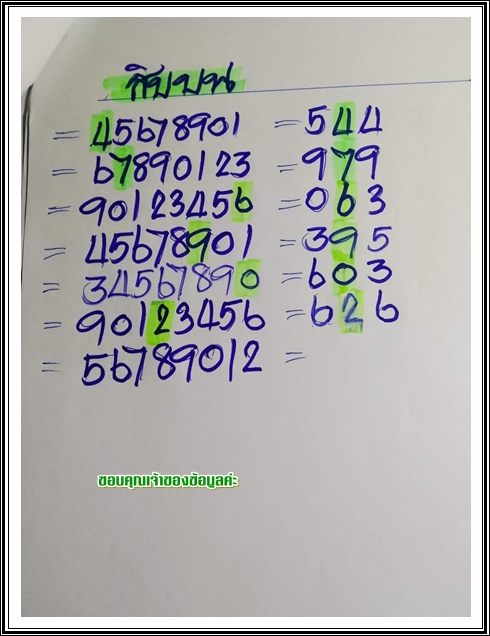 สิบบน
= 45678901 = 544
= 67890123 = 979
= 90123456 = 063
= 45678901 = 395
= 34567890 = 603
= 90123456 = 626
= 56789012 =
ขอบคุณเจ้าของข้อมูลค่ะ